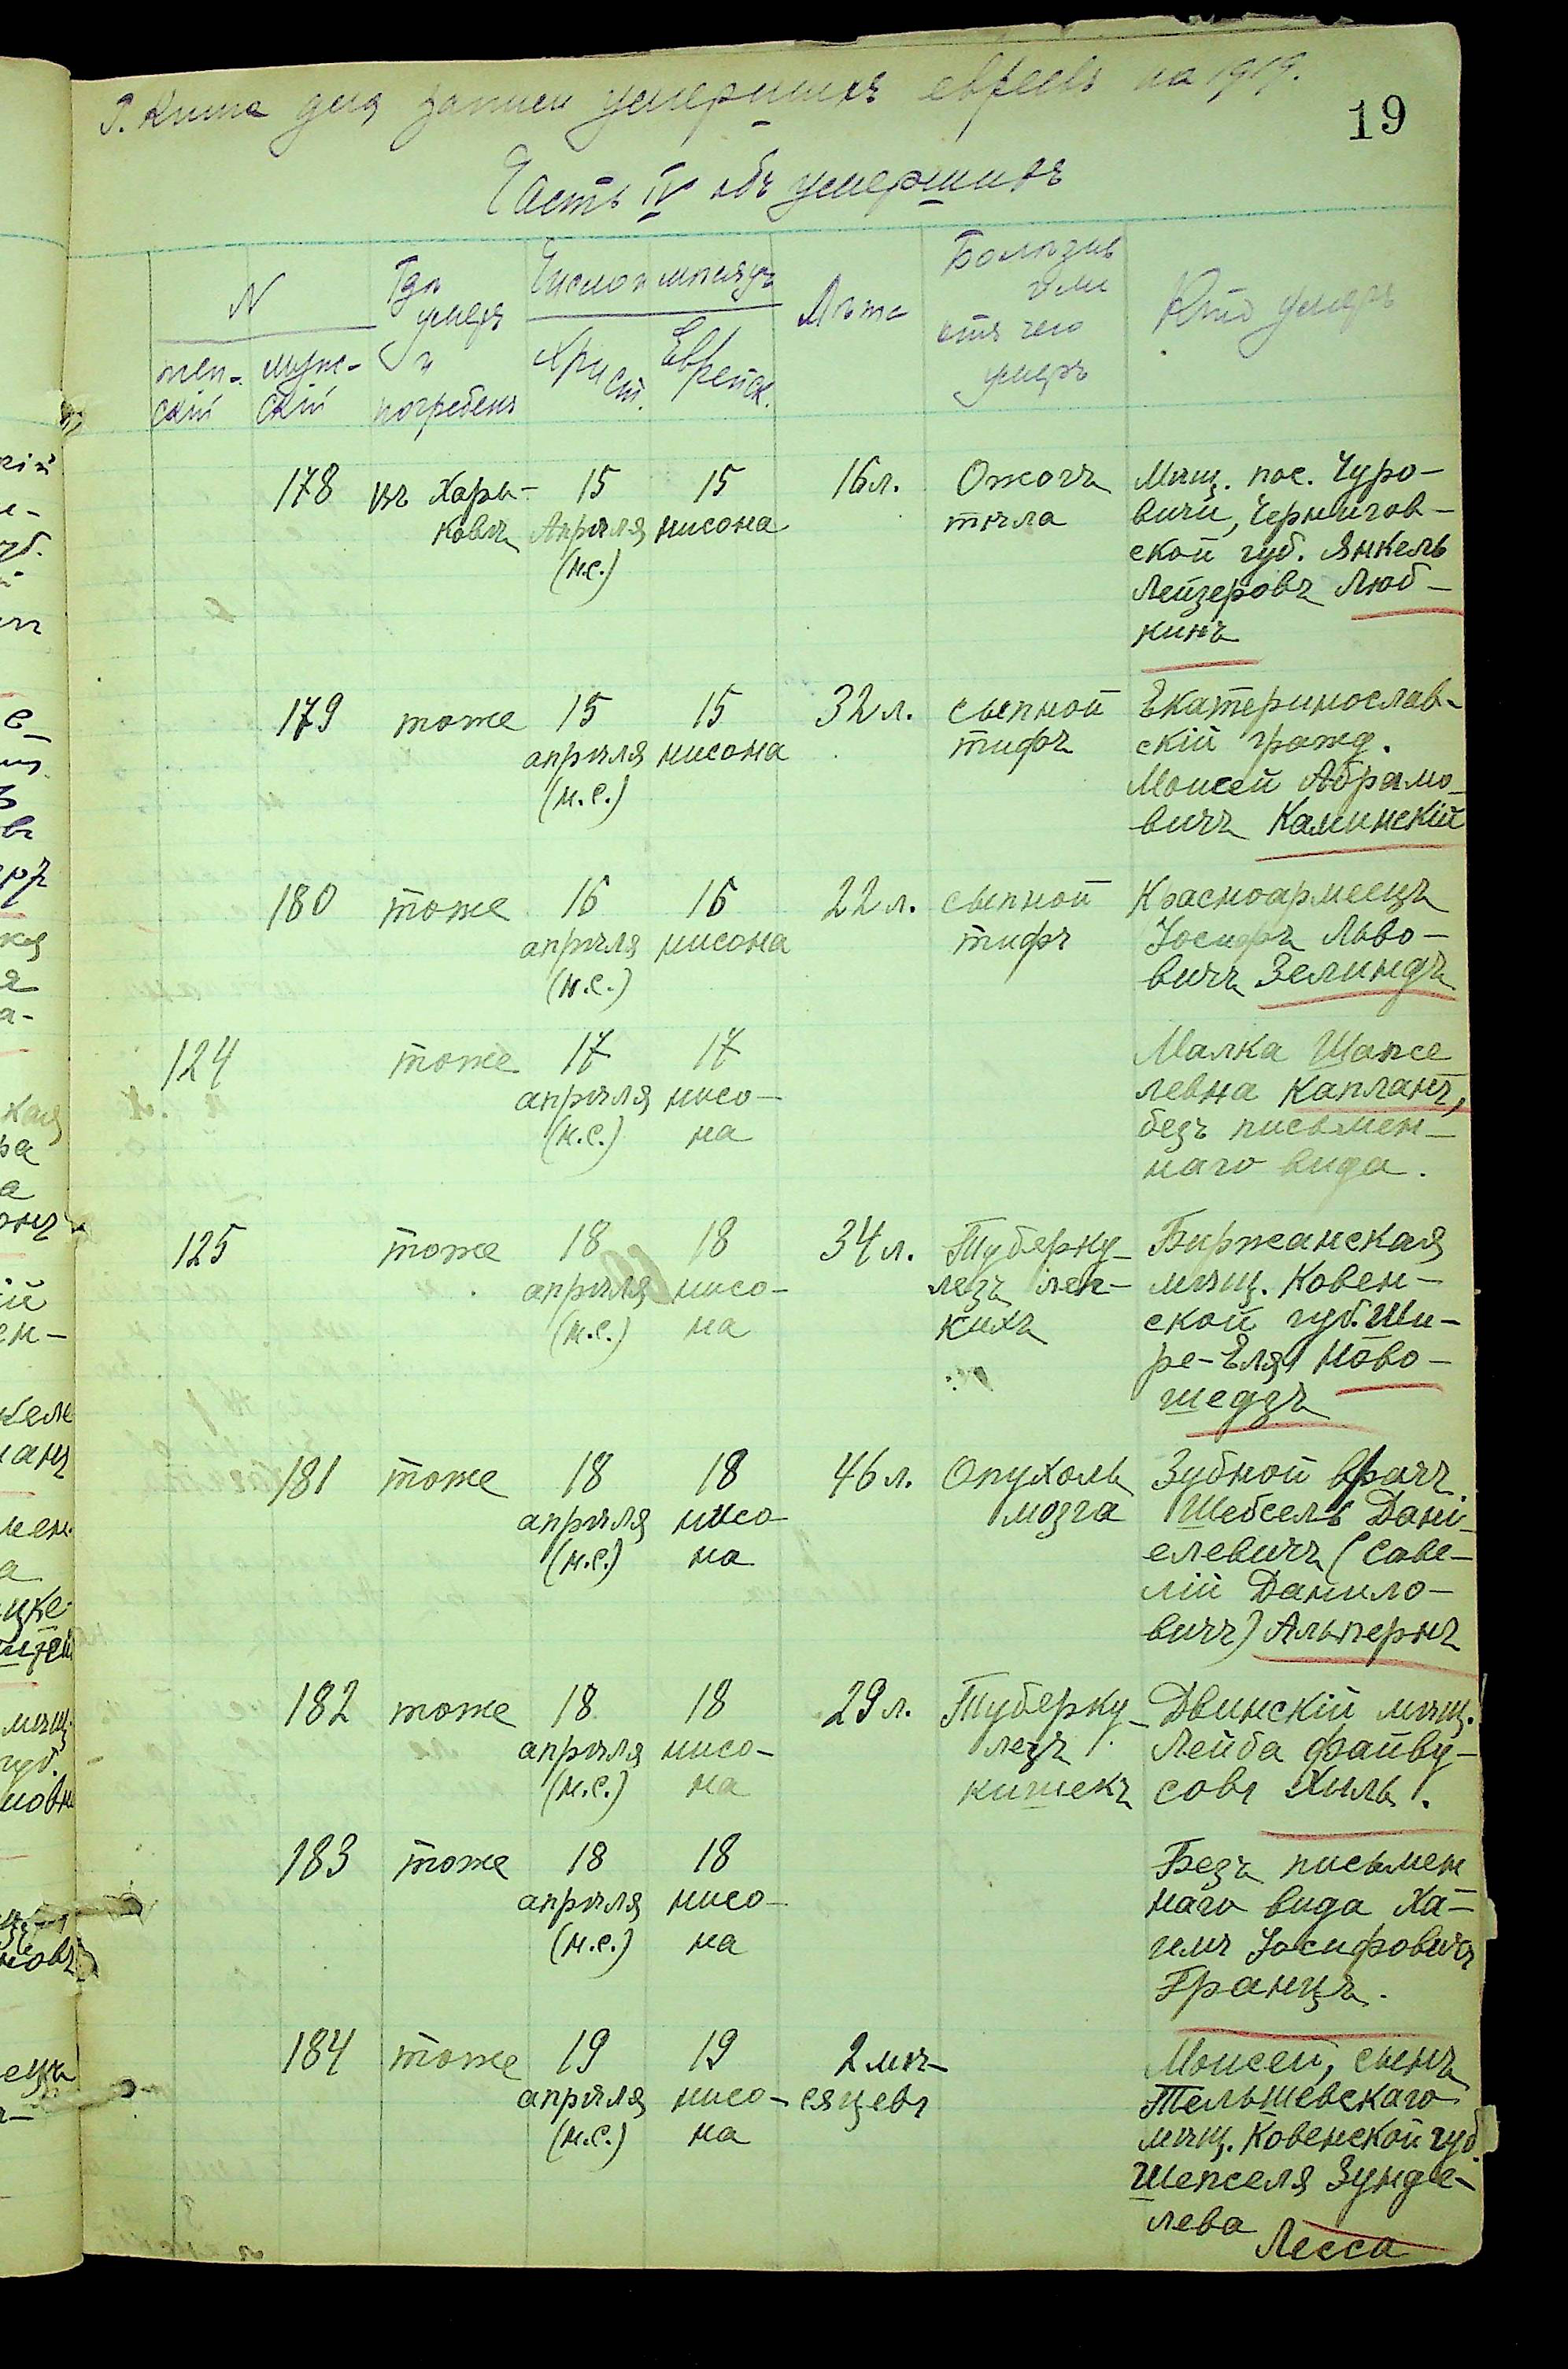 Книга для записи умершихъ евреевъ на 1919.
19
Часть IV объ умершихъ
N
жен-
скій
муж-
скій
Гдѣ
умеръ
и
погребенъ
Число и мѣсяцъ
Христ.
Еврейск.
Лѣта
Болѣзнь
или
отъ чего
умеръ
Кто умеръ
178
въ Харь-
ковѣ
15
Апрѣля
(н.с.)
15
нисона
16 л.
Ожогъ
тѣла
Мѣщ. пос. Чуро-
вичи, Чернигов-
ской губ. Янкель
Лейзеровъ Люб-
кинъ
179
тоже
15
апрѣля
(н.с.)
15
нисона
32 л.
сыпной
тифъ
Екатеринослав-
скій гражд.
Моисей Абрамо-
вичъ Каминскій
180
тоже
16
апрѣля
(н.с.)
16
нисона
22 л.
сыпной
тифъ
Красноармеецъ
Іосифъ Льво-
вичъ Зелиндъ
124
тоже
17
апрѣля
(н.с.)
17
нисо-
на
Малка Шапсе
левна Капланъ,
безъ письмен-
наго вида.
125
тоже
18
апрѣля
(н.с.)
18
нисо-
на
34 л.
Туберку-
лезъ лег-
кихъ
Биржанская
мѣщ. Ковен-
ской губ. Ши-
ре-Еля Ново-
шедзъ
181
тоже
18
апрѣля
(н.с.)
18
нисо-
на
46 л.
Опухоль
мозга
Зубной врачъ
Шебсель Дані-
елевичъ (Саве-
лій Данило-
вичъ) Альпернъ
182
тоже
18
апрѣля
(н.с.)
18
нисо-
на
29 л.
Туберку-
лезъ
кишекъ
Двинскій мѣщ.
Лейба Файву-
совъ Хиль.
183
тоже
18
апрѣля
(н.с.)
18
нисо-
на
Безъ письмен
наго вида Ха-
имъ Іосифовичъ
Гранцъ.
184
тоже
19
апрѣля
(н.с.)
19
нисо-
на
2 мѣ-
сяцевъ
Моисей, сынъ
Тельшевскаго
мѣщ. Ковенской губ.
Шепселя Зунде-
лева
Лесса